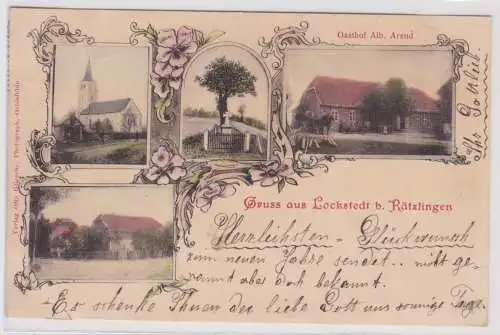 Gasthof Alb. Arend
Gruss aus Lockstedt b. Rätzlingen
Herzlichsten Glückwunsch
zum neuen Jahre sendet nicht ge-
nannt aber doch bekannt.
Es schenke Ihnen der liebe Gott nur sonnige Tage.
Ihr Gottlieb.
Verlag Otto Photograph, Oebisfelde